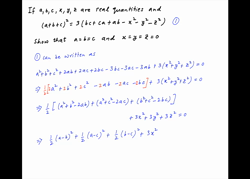 If a, b, c, x, y, z are real quantities and
(a+b+c)² = 3(bc + ca + ab - x² - y² - z²) ①
Show that a=b=c and x=y=z=0
① can be written as
a²+b²+c² + 2ab + 2ac + 2bc - 3bc - 3ca - 3ab + 3(x²+y²+z²) = 0
⇒ 2a² + 2b² + 2c² - 2ab - 2ac - 2bc + 3(x²+y²+z²) = 0
⇒ ½ [(a²+b²-2ab) + (a²+c²-2ac) + (b²+c²-2bc)]
+ 3x² + 3y² + 3z² = 0
⇒ ½ (a-b)² + ½ (a-c)² + ½ (b-c)² + 3x²